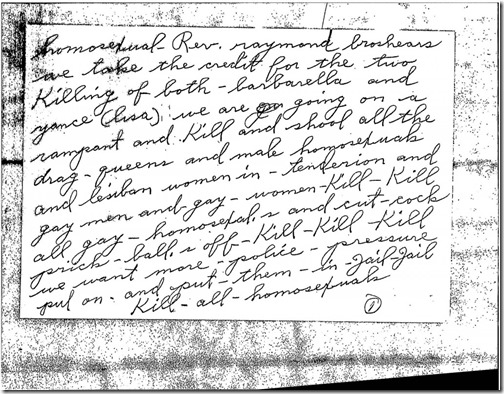 homosexual - Rev. raymond broshears
we take the credit for the two
Killing of both - barbarella and
yance (lisa) we are going on a
rampant and Kill and shool all the
drag - queens and male homosexuals
and lesiban women in - tenderion and
gay men and - gay - women - Kill - Kill
all gay - homosexal,s and cut - cock
prick - ball,s off - Kill - Kill - Kill
we want more - police - pressure
pul on - and put - them - in - Jail - Jail
Kill - all - homosexuals
1